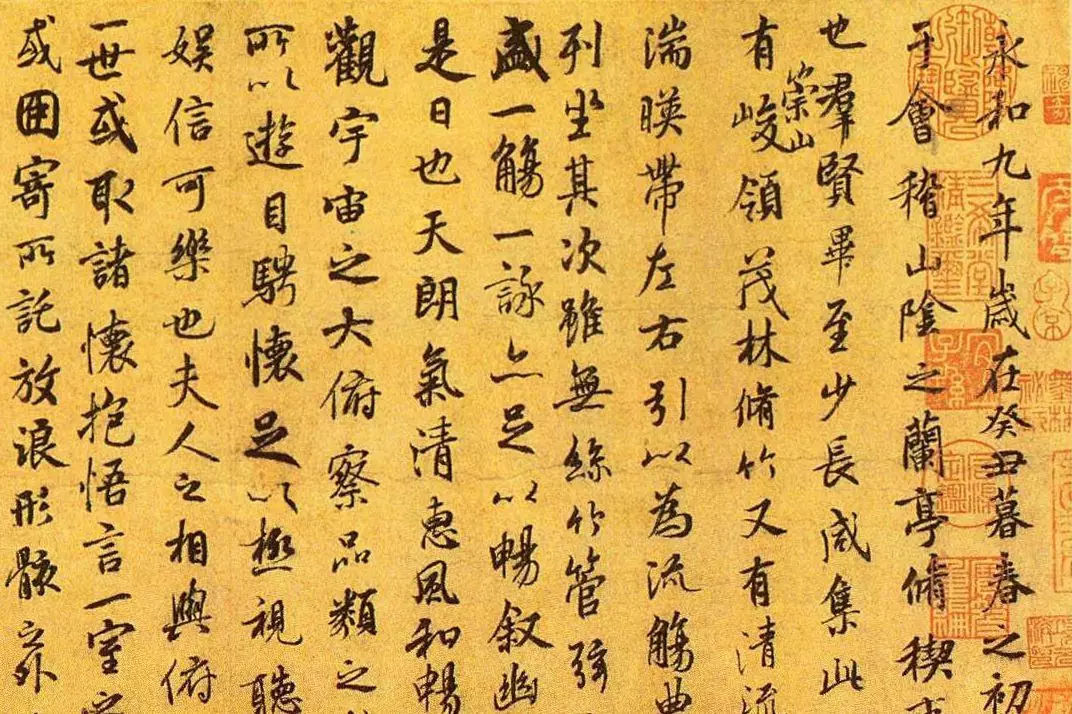 永和九年歲在癸丑暮春之初
于會稽山陰之蘭亭脩稧事
也羣賢畢至少長咸集此
有崇山峻領茂林脩竹又有清流
湍暎帶左右引以為流觴曲
列坐其次雖無絲竹管弦
盛一觴一詠亦足以暢叙幽
是日也天朗氣清惠風和暢
觀宇宙之大俯察品類之
所以遊目騁懷足以極視聽
娛信可樂也夫人之相與俯
一世或取諸懷抱悟言一室之
或因寄所託放浪形骸之外